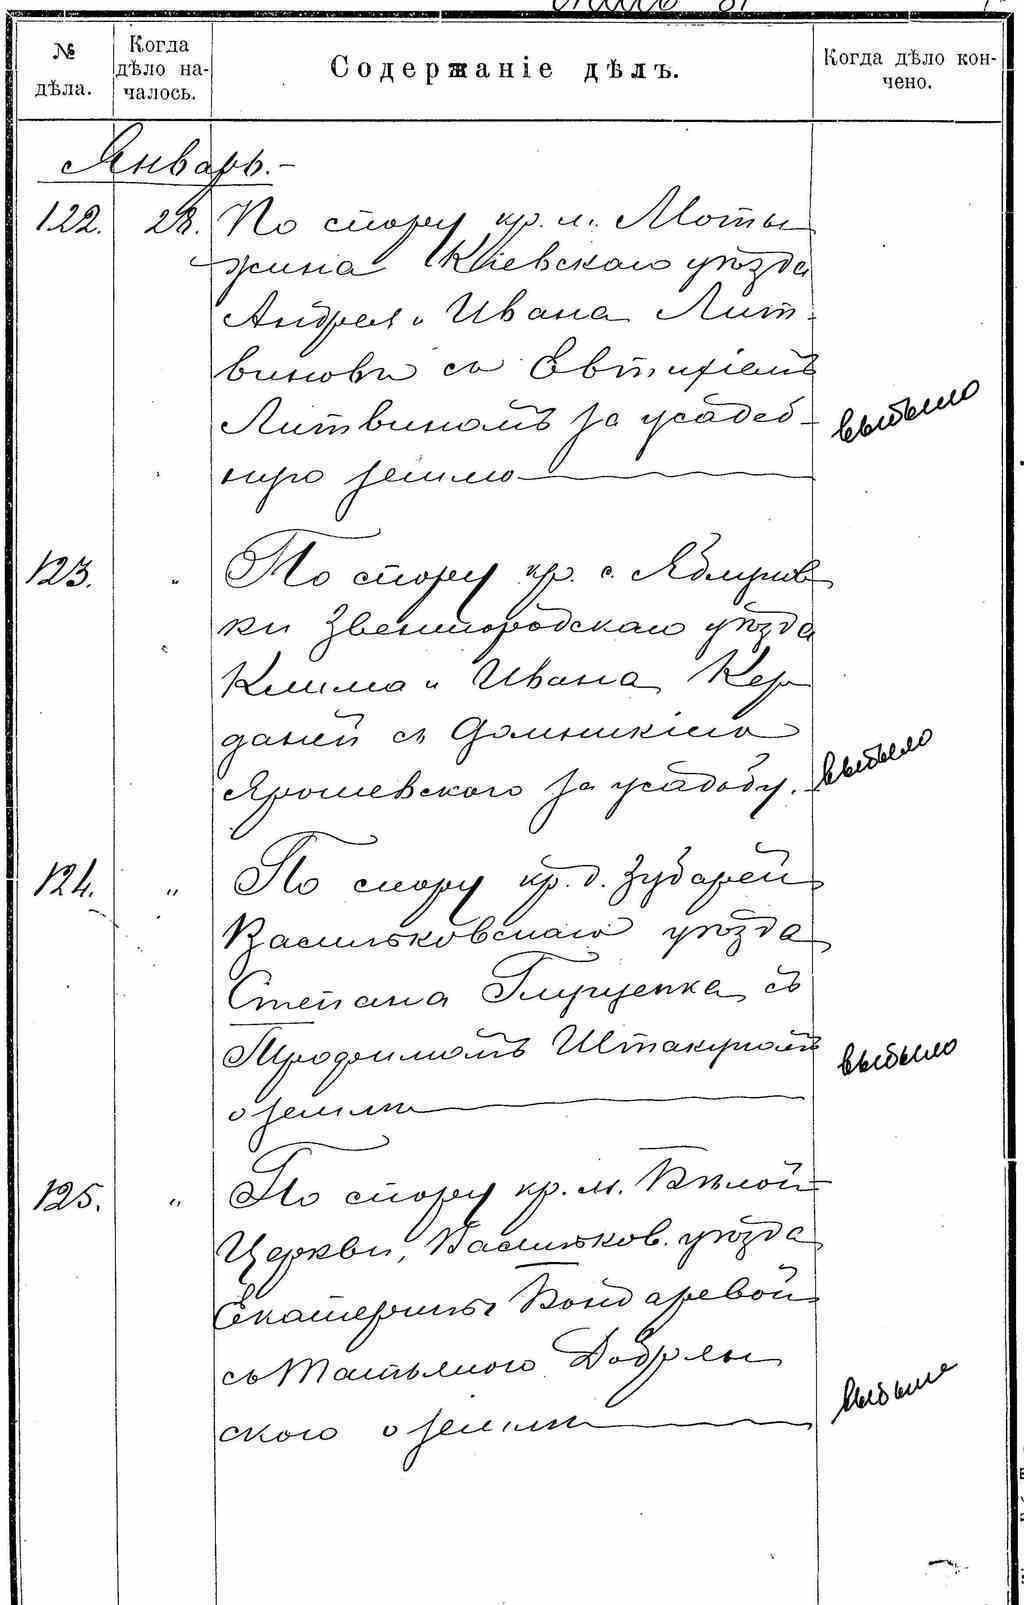 № дѣла.
Когда дѣло на-
чалось.
Содержаніе дѣлъ.
Когда дѣло кон-
чено.
Январь.-
122. 28. По спору кр. м. Моты
жина Кіевскаго уѣзда
Андрея и Ивана Лит-
винови съ Евтихіемъ
Литвиномъ за усадеб-
ную землю
выбыло
123. " По спору кр. с. Яблунов
ки Звенигородскаго уѣзда
Клима и Ивана Кер
даней съ Домникіею
Ярошевского за усадьбу.
выбыло
124. " По спору кр. д. Зубарей
Васильковскаго уѣзда
Степана Глущенка съ
Трофимомъ Штакуномъ
о землѣ
выбыло
125. " По спору кр. м. Бѣлой
Церкви, Васильков. уѣзда
Екатерины Бондаревой
съ Татьяною Добрян
ского о землѣ
выбыло